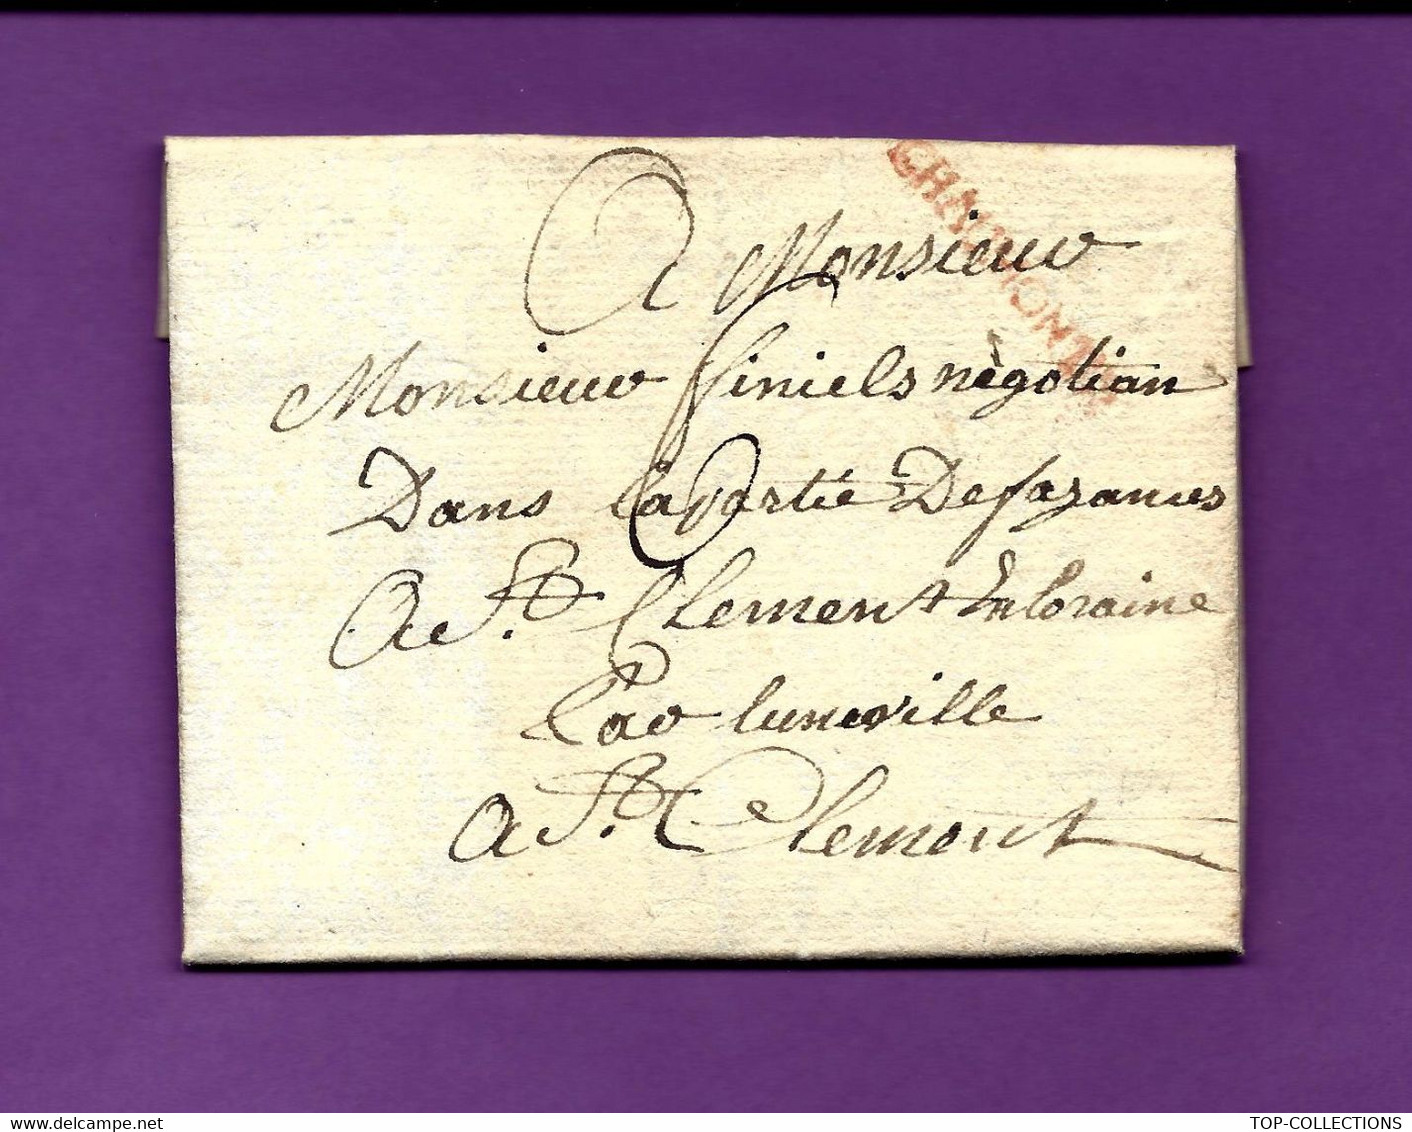 CHAUMONT
A Monsieur
Monsieur finiels nègotian
Dans la partie De fayances
A St. Clement En Loraine
Par luneville
A St. Clement
www.delcampe.net
TOP-COLLECTIONS